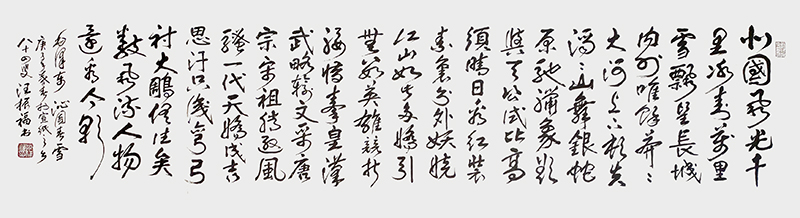 北國風光千
里冰封萬里
雪飄望長城
内外唯餘莽々
大河上下頓失
滔々山舞銀蛇
原馳臘象欲
與天公試比高
須晴日看紅裝
素裹分外妖嬈
江山如此多嬌引
無數英雄競折
腰惜秦皇漢
武略輸文采唐
宗宋祖稍遜風
騷一代天驕成吉
思汗只識彎弓
射大鵰俱往矣
數風流人物
還看今朝
毛澤東 沁園春雪
八十四叟汪振福書